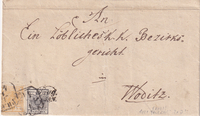 An
Ein Löbliches k. k. Bezirks-
gericht
Woditz